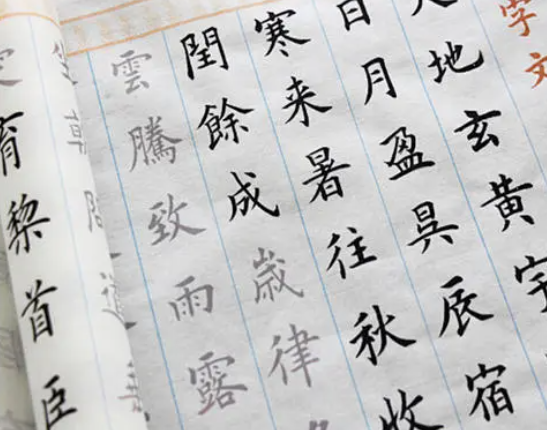 字文
地玄黄宇
日月盈昃辰宿
寒来暑往秋收
閏餘成歳律
雲騰致雨露
育黎首臣